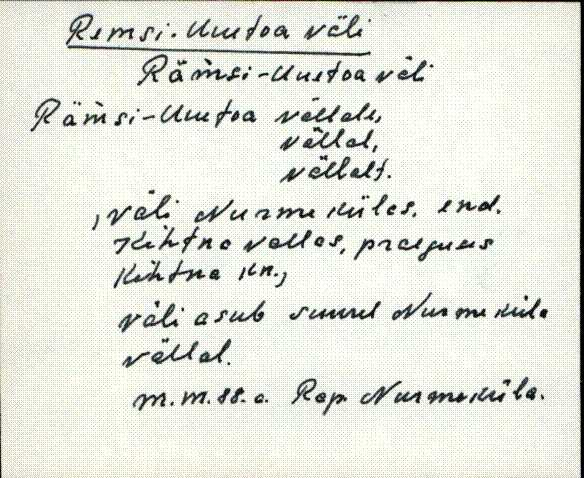 Remsi-Uuetoa väli
Rämsi-Uuetoa väli
Rämsi-Uuetoa vällale,
vällal,
vällalt.
, väli Nurmekülas, end.
Kihtna vallas, praeguses
Kihtna kn.,
väli asub suurel Nurmeküla
vällal.
m.m. 88.a. Rap. Nurmeküla.